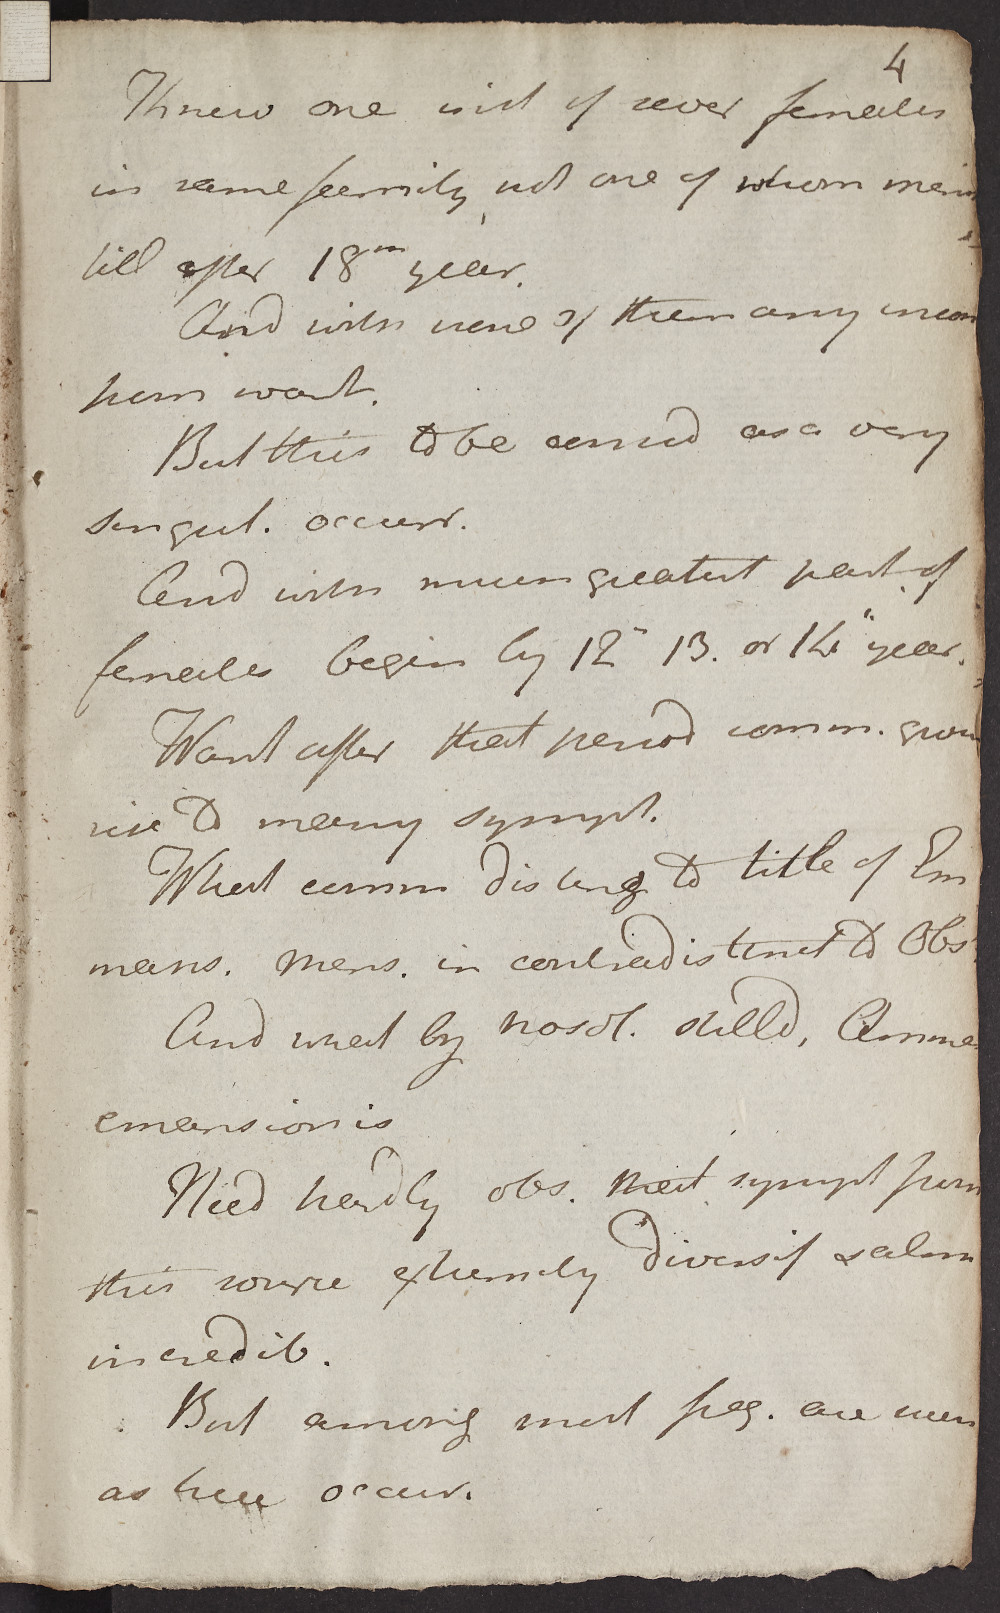 4
Knew one inst of sever females
in same family, not one of whom men
till after 18th year.
And with none of them any incon
from want.
But this to be consid as a very
singul. occurr.
And with much greatest part of
females begin by 12th 13. or 14th year.
Want after that period comm. gives
rise to many sympt.
What comm disting to title of Em
mans. mens. in contradistinct to Obs
And what by nosol. styled, Amme
emansionis
Need hardly obs. that sympt from
this source extremely diversif & almo
incredib.
But among most freq. are such
as here occur.